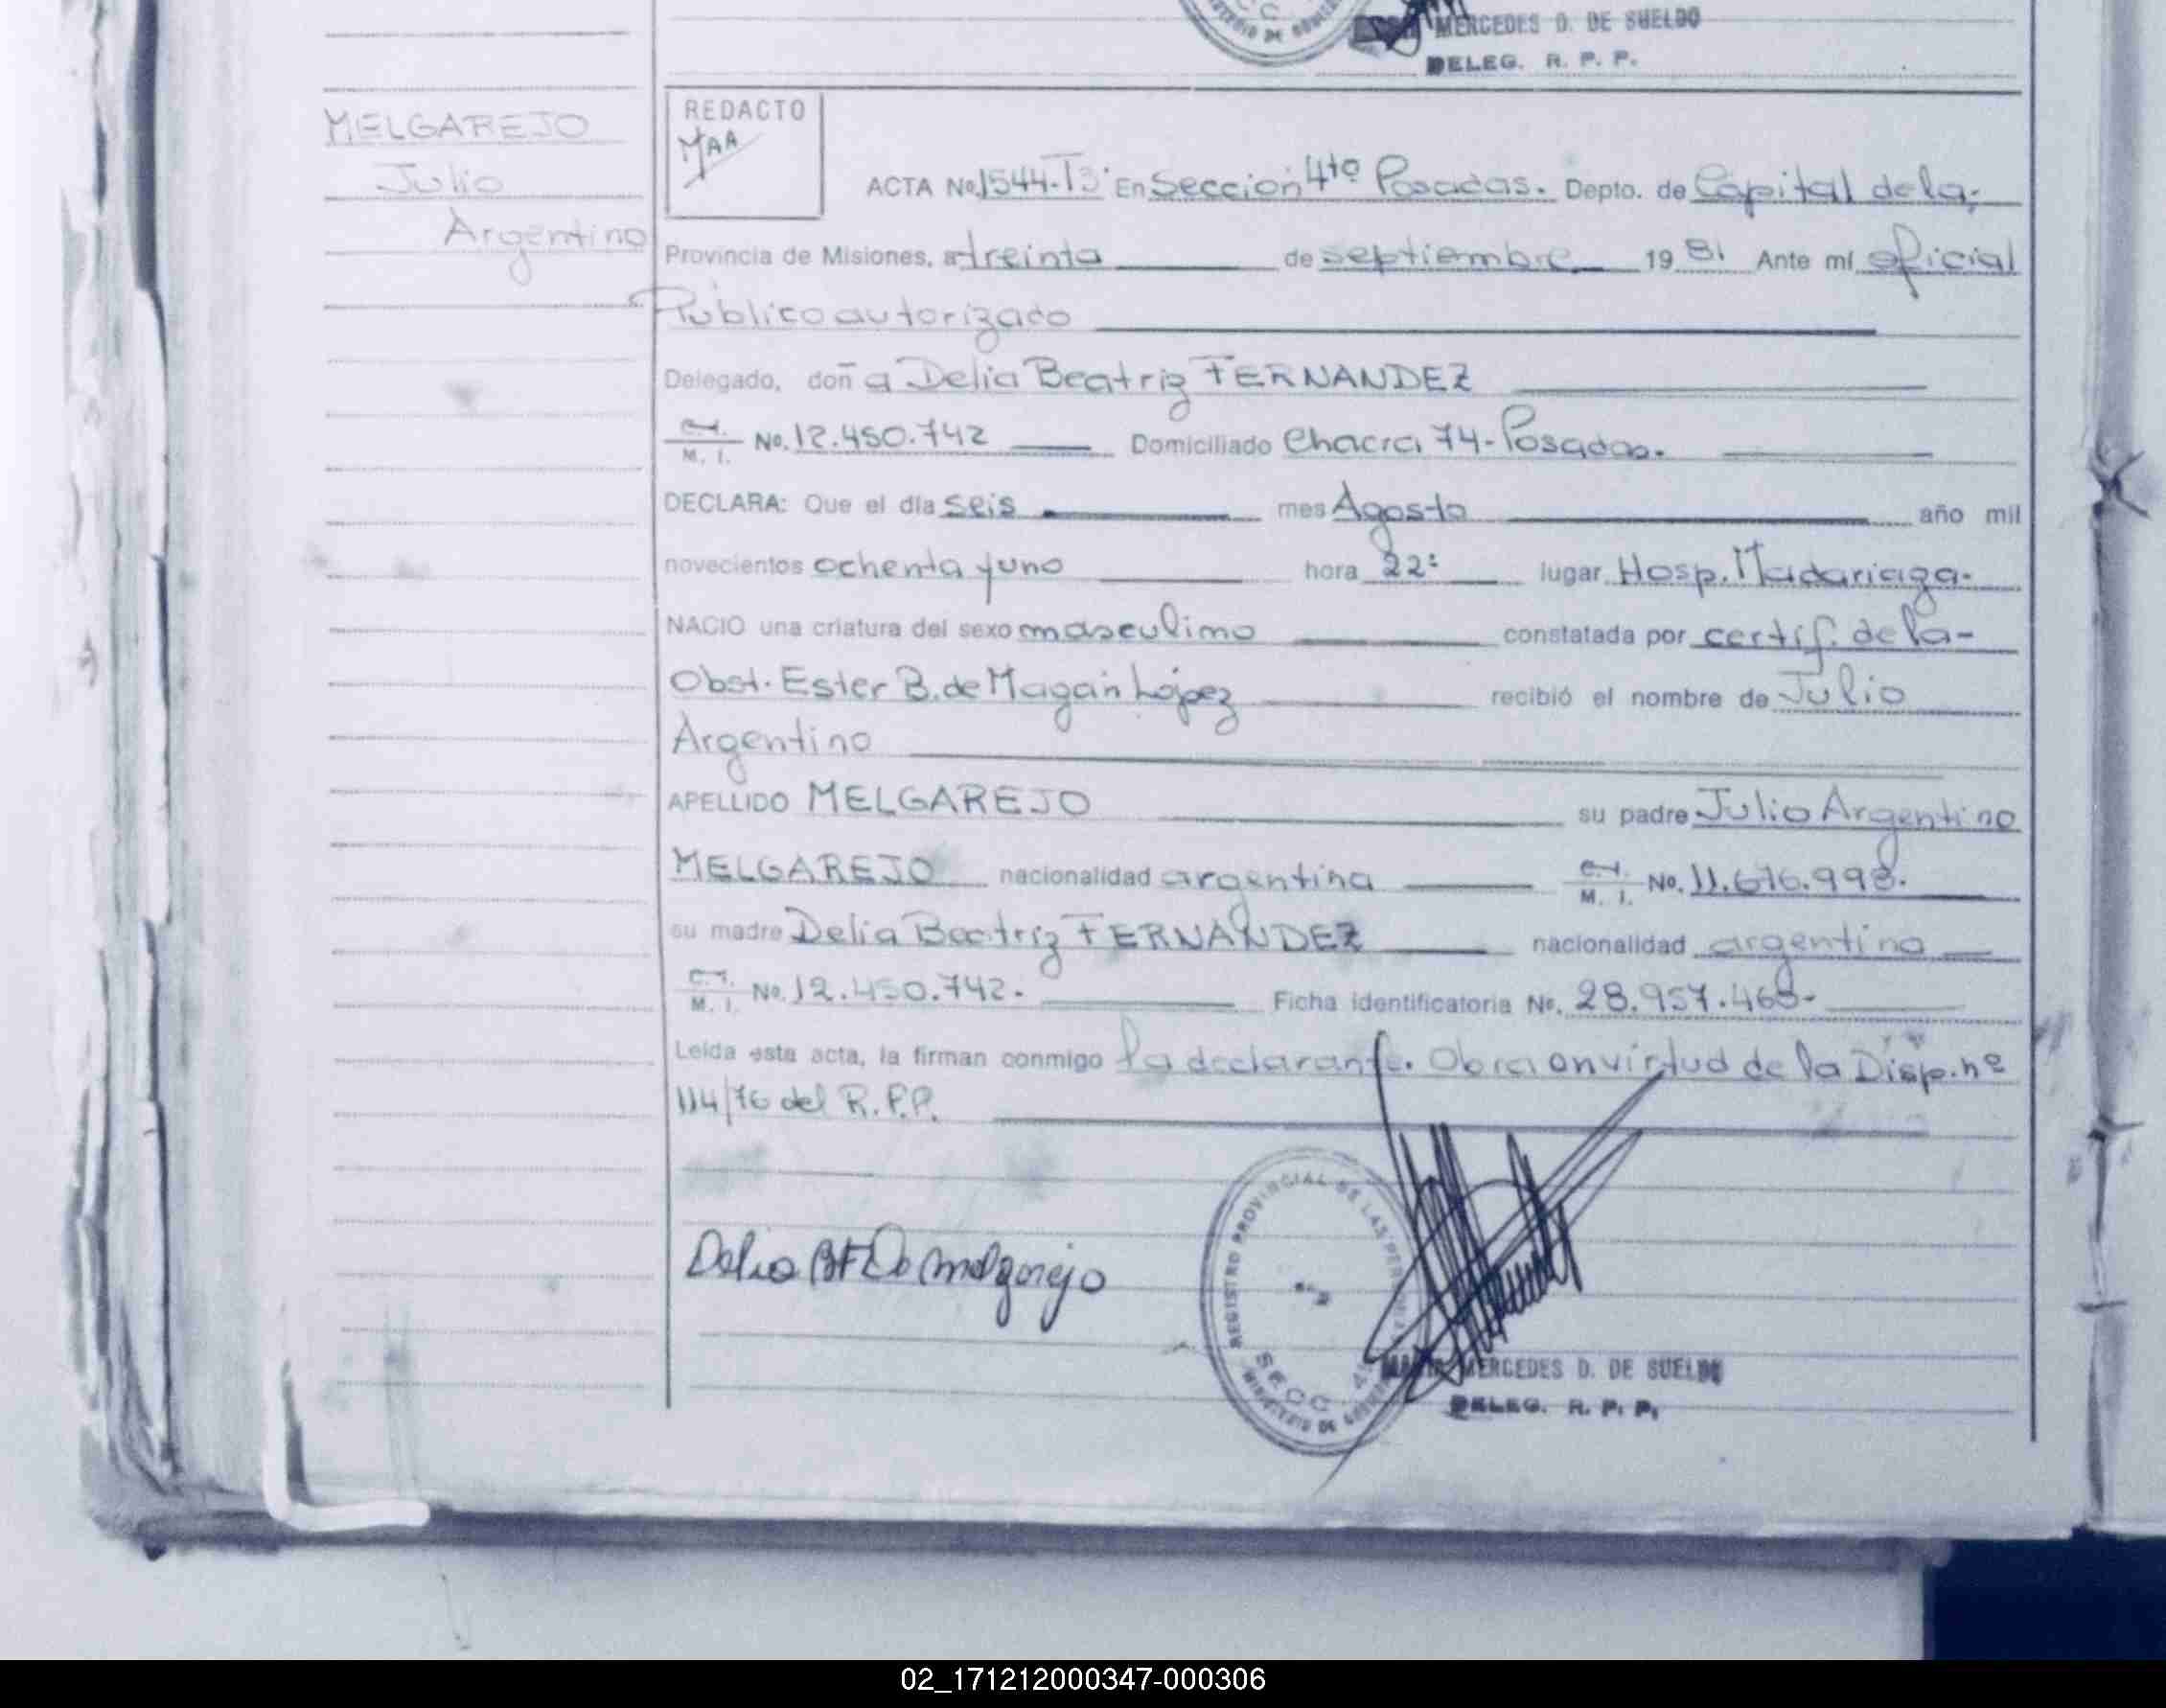 MERCEDES D. DE SUELDO
DELEG. R. P. P.
MELGAREJO
Julio
Argentino
REDACTO
MAA
ACTA No. 1544-T3 En Sección 4ta Posadas. Depto. de Capital de la,
Provincia de Misiones, a treinta de septiembre 19 81 Ante mí oficial
Público autorizado
Delegado, doñ a Delia Beatriz FERNANDEZ
C.I. M. I. No. 12.450.742 Domiciliado Chacra 74-Posadas.
DECLARA: Que el día seis mes Agosto año mil
novecientos ochenta y uno hora 22: lugar Hosp. Madariaga.
NACIO una criatura del sexo masculino constatada por certif. de la-
Obst. Ester B. de Magán López recibió el nombre de Julio
Argentino
APELLIDO MELGAREJO su padre Julio Argentino
MELGAREJO nacionalidad argentina C.I. M. I. No. 11.676.998.
su madre Delia Beatriz FERNANDEZ nacionalidad argentina
C.I. M. I. No. 12.450.742.- Ficha identificatoria No. 28.957.468-
Leída esta acta, la firman conmigo la declarante. Obra en virtud de la Disp. nº
114/76 del R.P.P.
Delia BF De Melgarejo
REGISTRO PROVINCIAL DE LAS PER
SECC. 4ª
MINISTERIO DE GOBIERNO
MARIA MERCEDES D. DE SUELDO
DELEG. R. P. P.
02_171212000347-000306